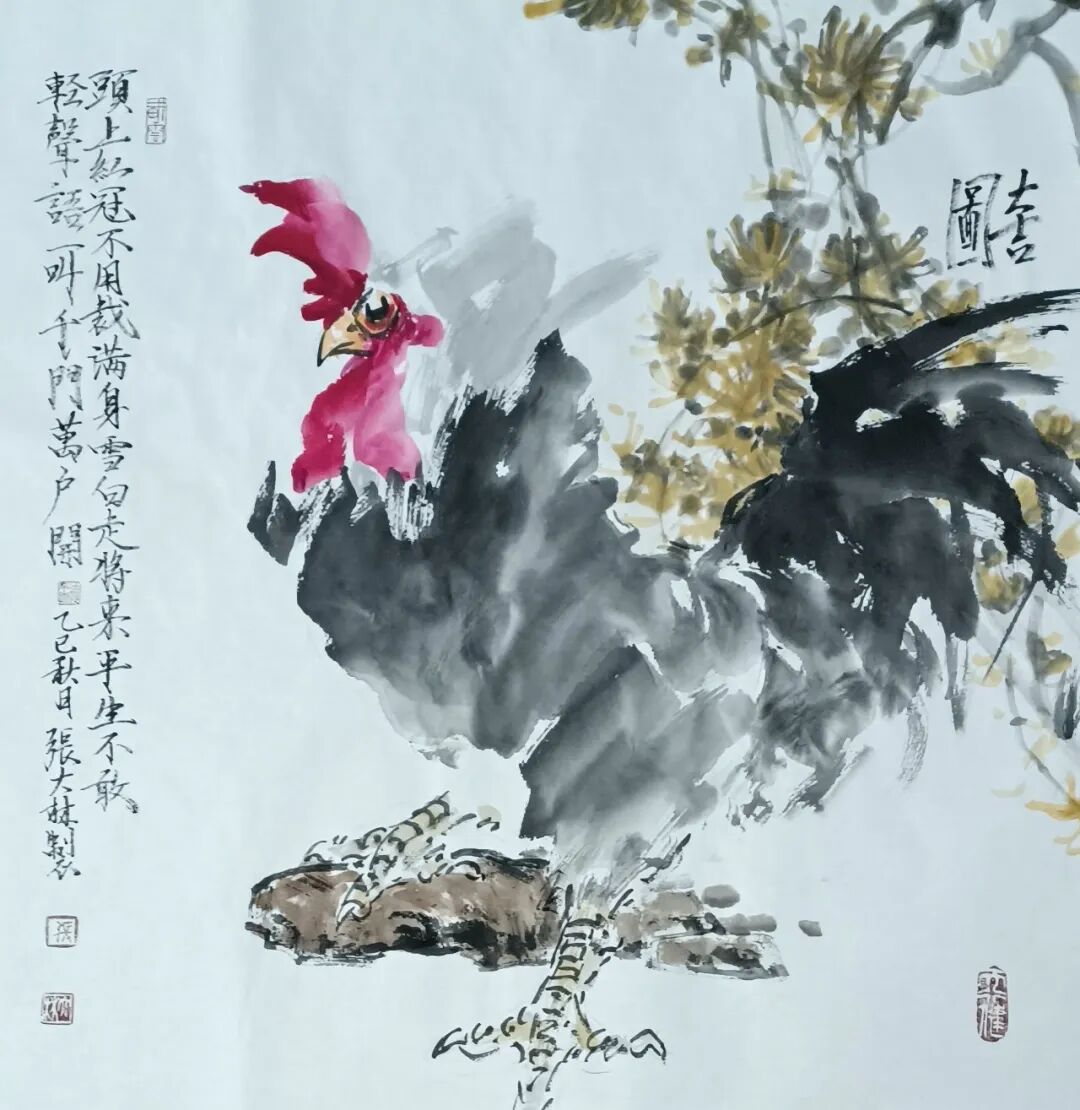 大吉
圖
頭上紅冠不用裁满身雪白走将来平生不敢
輕聲語一叫千門萬户開
乙巳秋月張大林製
張